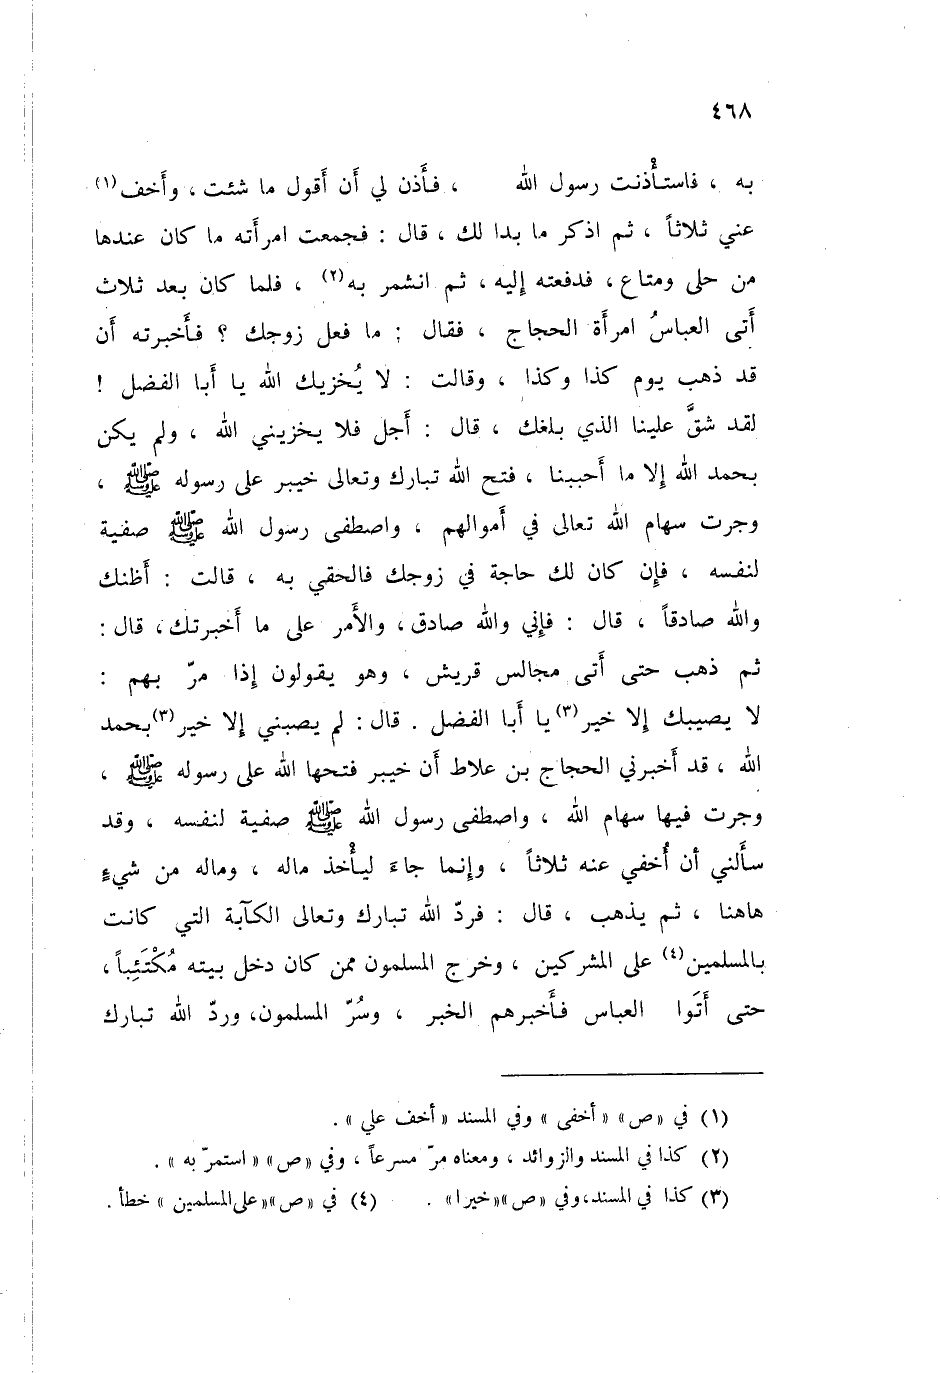 ٤٦٨
به ، فاستأْذنت رسول الله ، فأَذن لي أَن أَقول ما شئت ، وأَخف(١)
عني ثلاثاً ، ثم اذكر ما بدا لك ، قال : فجمعت امرأَته ما كان عندها
من حلى ومتاع ، فدفعته إليه ، ثم انشمر به(٢) ، فلما كان بعد ثلاث
أَتى العباسُ امرأَة الحجاج ، فقال : ما فعل زوجك ؟ فأَخبرته أَن
قد ذهب يوم كذا وكذا ، وقالت : لا يُخزيك الله يا أَبا الفضل !
لقد شقَّ علينا الذي بلغك ، قال : أَجل فلا يخزيني الله ، ولم يكن
بحمد الله إلا ما أَحببنا ، فتح الله تبارك وتعالى خيبر على رسوله ﷺ ،
وجرت سهام الله تعالى في أَموالهم ، واصطفى رسول الله ﷺ صفية
لنفسه ، فإن كان لك حاجة في زوجك فالحقي به ، قالت : أَظنك
والله صادقاً ، قال : فإني والله صادق ، والأَمر على ما أَخبرتك ، قال :
ثم ذهب حتى أَتى مجالس قريش ، وهو يقولون إذا مرّ بهم :
لا يصيبك إلا خير(٣) يا أَبا الفضل . قال : لم يصبني إلا خير(٣) بحمد
الله ، قد أَخبرني الحجاج بن علاط أَن خيبر فتحها الله على رسوله ﷺ ،
وجرت فيها سهام الله ، واصطفى رسول الله ﷺ صفية لنفسه ، وقد
سأَلني أن أُخفي عنه ثلاثاً ، وإنما جاءَ ليأْخذ ماله ، وماله من شيءٍ
هاهنا ، ثم يذهب ، قال : فردّ الله تبارك وتعالى الكآبة التي كانت
بالمسلمين(٤) على المشركين ، وخرج المسلمون ممن كان دخل بيته مُكْتَئِباً ،
حتى أَتَوا العباس فأَخبرهم الخبر ، وسُرّ المسلمون، وردّ الله تبارك
(١) في «ص» «أخفى» وفي المسند «أخف علي» .
(٢) كذا في المسند والزوائد ، ومعناه مرّ مسرعاً ، وفي «ص» «استمرّ به» .
(٣) كذا في المسند،وفي «ص»«خيرا» . (٤) في «ص»«على المسلمين» خطأ .